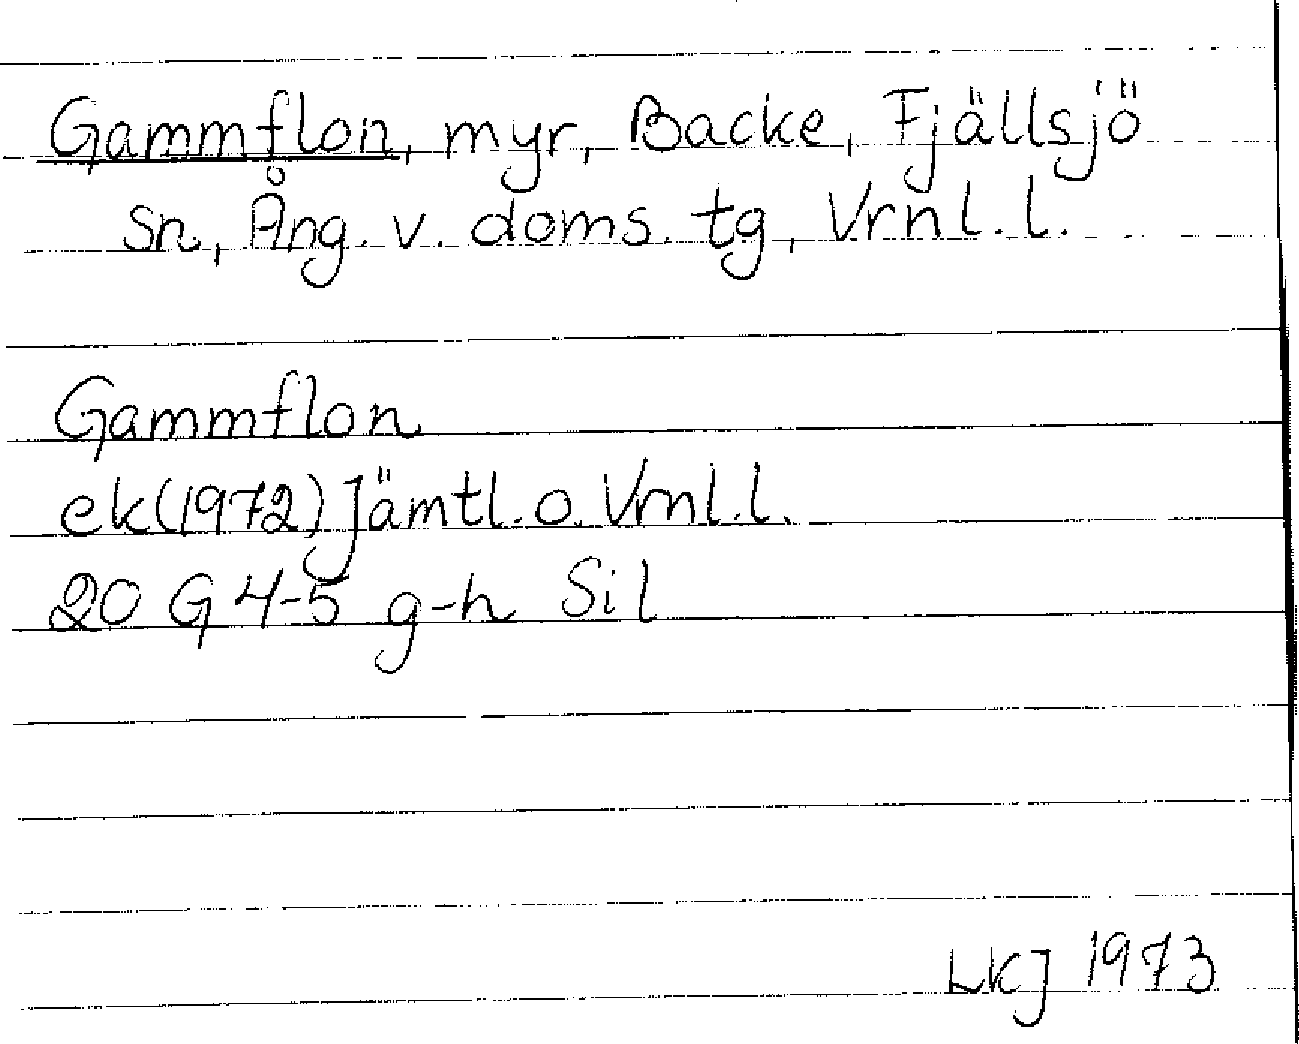 Gammflon, myr, Backe, Fjällsjö
sn, Ång. v. doms. tg, Vrnl. l.
Gammflon
ek(1972) Jämtl. o. Vrnl. l.
20 G 4-5 g-h Sil
LKJ 1973